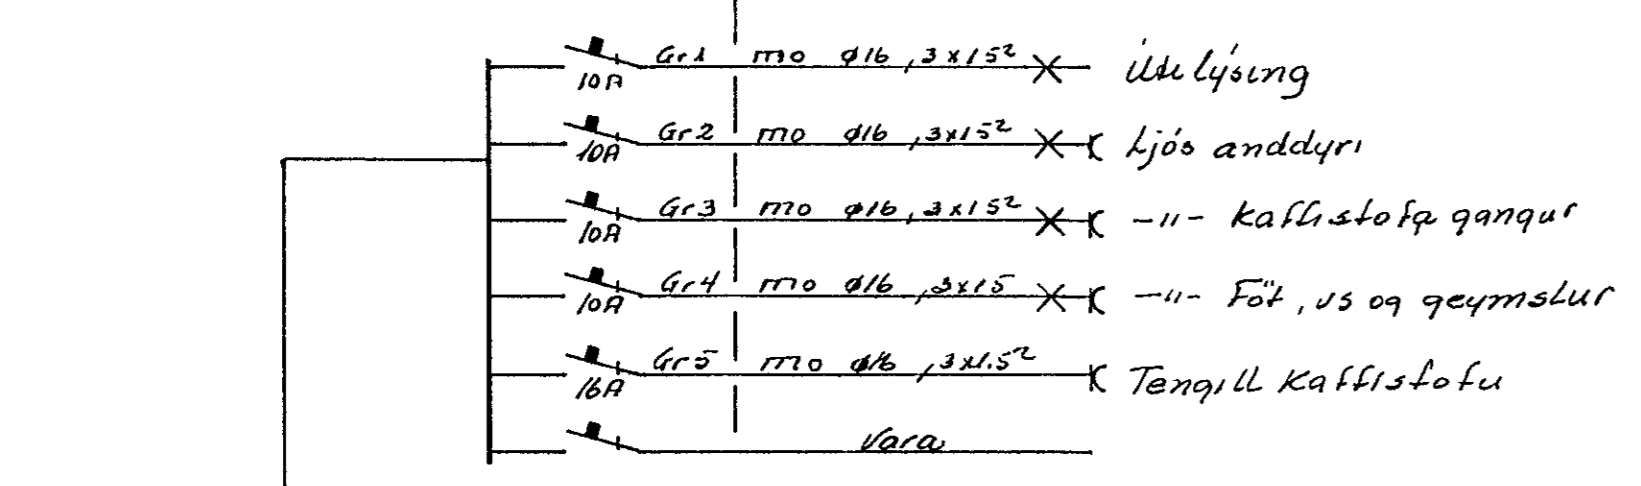 Gr1 mo ø16, 3x1.5² Úti lýsing
10A
Gr2 mo ø16, 3x1.5² Ljós anddyri
10A
Gr3 mo ø16, 3x1.5² -"- Kaffistofa gangur
10A
Gr4 mo ø16, 3x1.5 -"- Föt, vs og geymslur
10A
Gr5 mo ø16, 3x1.5² Tengill Kaffistofu
16A
Vara